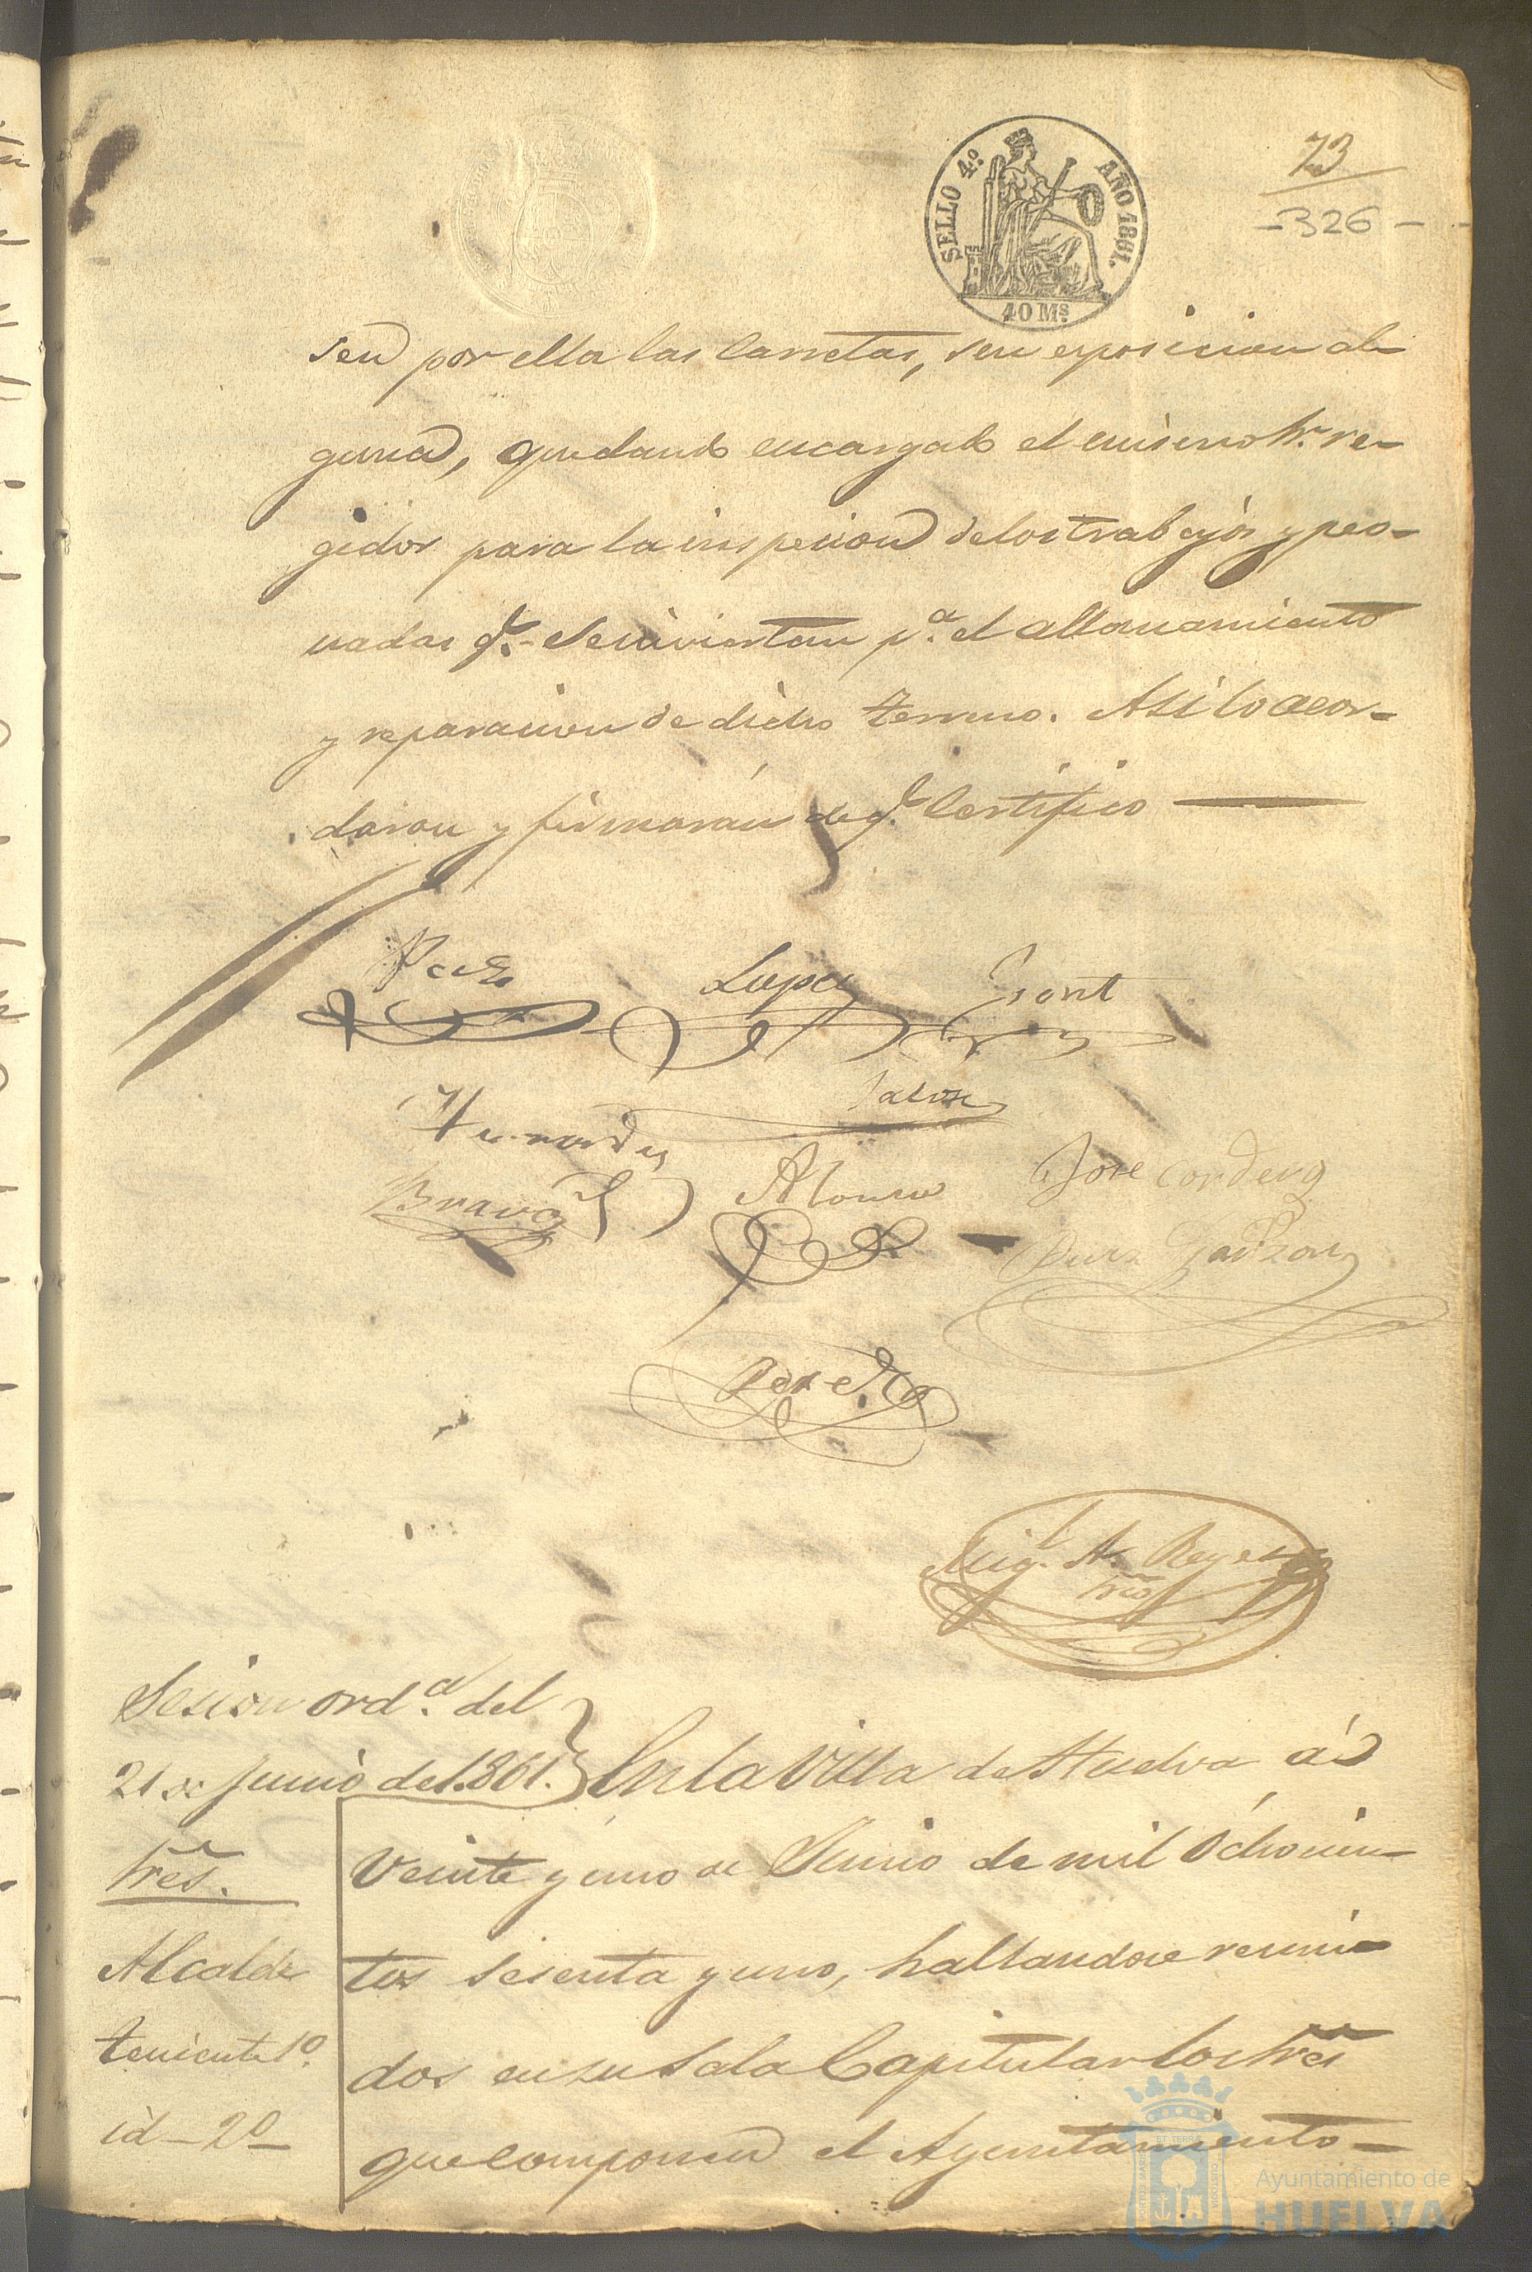 SELLO 4.º AÑO 1861.
40 Ms.
73
-326-
sen por ella las Carretas, sin exposicion al-
guna, quedando encargado el mismo Sr. re-
gidor para la inspecion de los trabajos y peo-
nadas q.e se inviertan p.a el allanamiento
y reparacion de dicho terreno. Asi lo acor-
daron y firmarán de q.e Certifico
Lopez Font
Hernandez
Bravo Alonso Jose Cordero
Garzon
Perez
Mig.l A. Reyes
Srio
Sesion ord.a del
21 de Junio de 1861.
Sres.
Alcalde
teniente 1º.
id - 2º -
En la Villa de Huelva á
Veinte y uno de Junio de mil Ochocien-
tos sesenta y uno, hallandose reuni-
dos en su Sala Capitular los Sres
que componen el Ayuntamiento
Ayuntamiento de
HUELVA